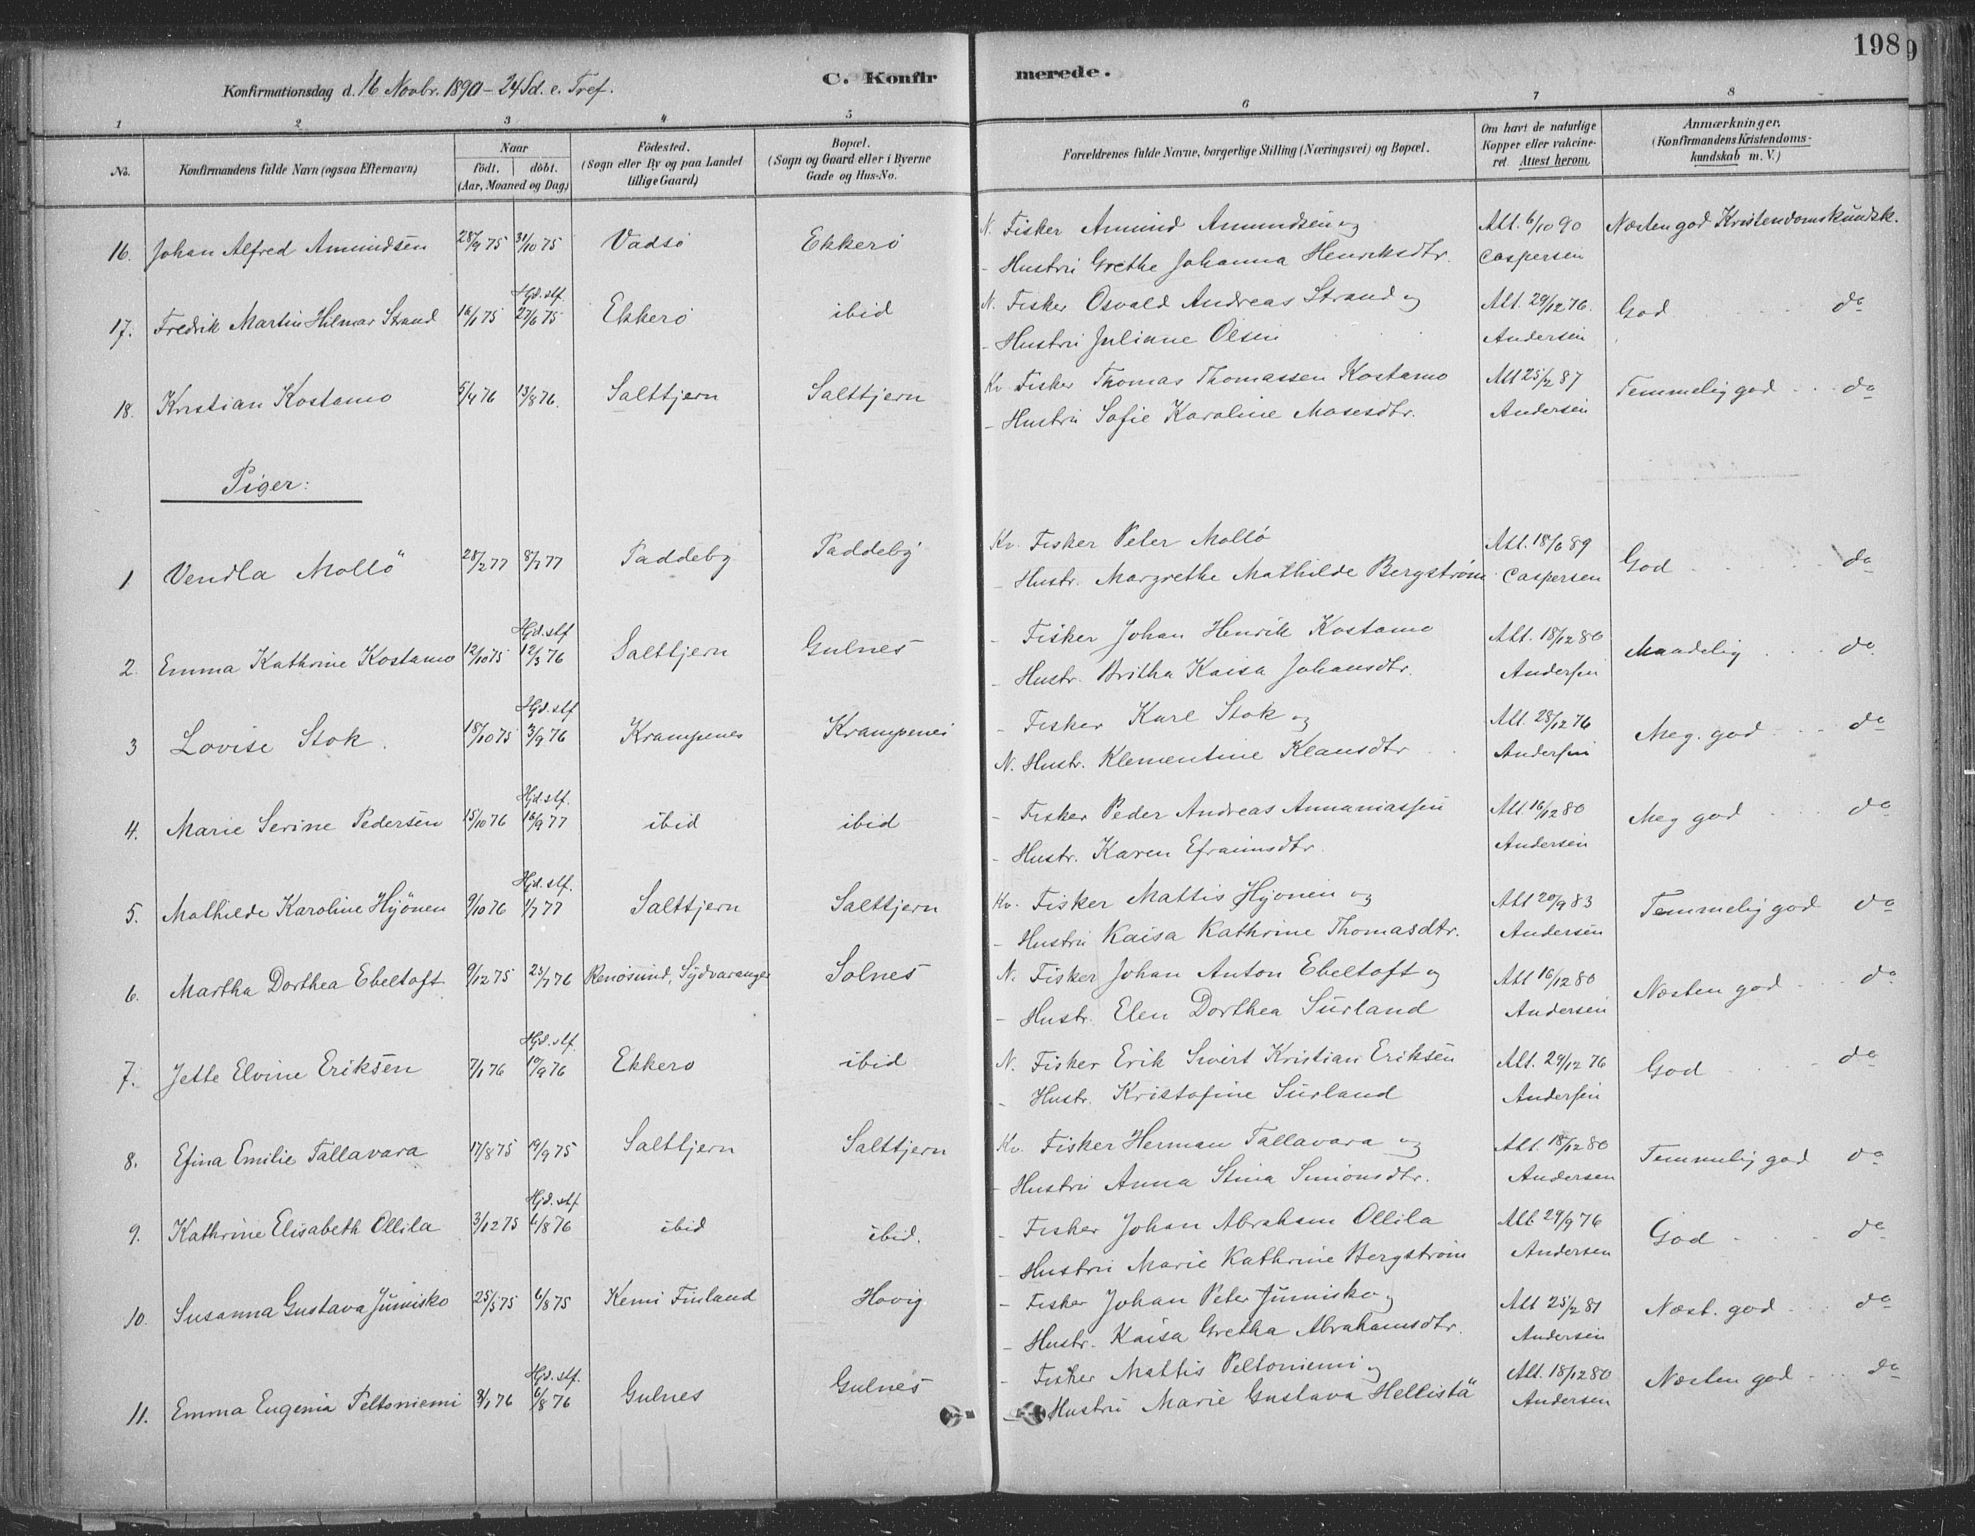 198
C. Konfirmerede.
Konfirmationsdag d. 16 Novbr. 1890 - 24 Sd. e. Tref.
1 2 3 4 5 6 7 8
No. Konfirmandens fulde Navn (ogsaa Efternavn) Naar födt. döbt. (Aar, Moaned og Dag) Födested. (Sogn eller By og paa Landet tillige Gaard) Bopæl. (Sogn og Gaard eller i Byerne Gade og Hus-No. Forældrenes fulde Navne, borgerlige Stilling (Næringsvei) og Bopæl. Om havt de naturlige Kopper eller vakcineret. Attest herom. Anmærkninger. (Konfirmandens Kristendomskundskab m. V.)
16. Johan Alfred Amundsen 28/9 75 31/10 75 Vadsö Ekkerö N. Fisker Amund Amundsen og Att. 6/10 90 Næsten god Kristendomskundsk.
- Hustru Grethe Johanna Henriksdtr. Caspersen
17. Fredrik Martin Hilmar Strand 16/1 75 Hjd. slf. 27/6 75 Ekkerö ibid N. Fisker Osvald Andreas Strand og Att. 29/12 76. God do
- Hustru Juliane Olsen Andersen
18. Kristian Kostamo 5/4 76 13/8 76. Salttjern Salttjern Kv. Fisker Thomas Thomassen Kostamo Att 25/2 87 Temmelig god do
- Hustru Sofie Karoline Mosesdtr. Andersen
Piger:
1. Vendla Mollö 28/2 77 8/7 77 Paddeby Paddeby Kv. Fisker Peter Mollö Att. 18/6 89 God do
- Hustr. Margrethe Mathilde Bergström Caspersen
2. Emma Kathrine Kostamo 12/10 75 Hjd. slf 12/3 76 Salttjern Gulnes - Fisker Johan Henrik Kostamo Att. 18/12 80 Maadelig do
- Hustr. Britha Kaisa Johansdtr. Andersen
3 Lovise Stok. 18/10 75 Hjd. slf 3/9 76 Krampenes Krampenes - Fisker Karl Stok og Att. 28/12 76 Meg. god do
N. Hustr. Klementine Klausdtr Andersen
4. Marie Serine Pedersen 15/10 76 Hjd. slf. 16/9 77 ibid ibid - Fisker Peder Andreas Annamassen Att. 16/12 80 Meg god do
- Hustr. Karen Efraimsdtr. Andersen
5. Mathilde Karoline Hyönen 9/10 76 Hjd. slf. 1/7 77 Salttjern Salttjern Kv. Fisker Mattis Hyönen og Att 20/9 83 Temmelig god do
- Hustru Kaisa Kathrine Thomasdtr. Andersen
6. Martha Dorthea Ebeltoft 9/12 75 23/7 76 Renösund, Sydvaranger Solnes N. Fisker Johan Anton Ebeltoft og Att 16/12 80 Næsten god do
- Hustr. Elen Dorthea Surland Andersen
7. Jette Elvine Eriksen 7/1 76 Hjd. slf. 10/9 76 Ekkerö ibid N. Fisker Erik Sivert Kristian Eriksen Att. 29/12 76 God do
- Hustr. Kristofine Surland Andersen
8. Efina Emilie Tallavara 17/8 75 19/9 75 Salttjern Salttjern Kv. Fisker Herman Tallavara og Att. 18/12 80 Temmelig god do
- Hustru Anna Stina Simonsdtr. Andersen
9. Kathrine Elisabeth Ollila 3/12 75 Hjd. slf 6/8 76 ibid ibid. - Fisker Johan Abraham Ollila Att 29/9 76 God do
- Hustru Marie Kathrine Bergström Andersen
10. Susanna Gustava Jumisko 25/5 75 6/8 75 Kemi Finland Hovig. - Fisker Johan Peter Jumisko og Att 25/2 81 Næst. god do
- Hustr. Kaisa Gretha Abrahamsdtr. Andersen
11. Emma Eugenia Peltoniemi 8/1 76 Hjd. slf. 6/8 76 Gulnes Gulnes - Fisker Mattis Peltoniemi og Att. 18/12 80 Næsten god do
- Hustru Marie Gustava Hellistä Andersen